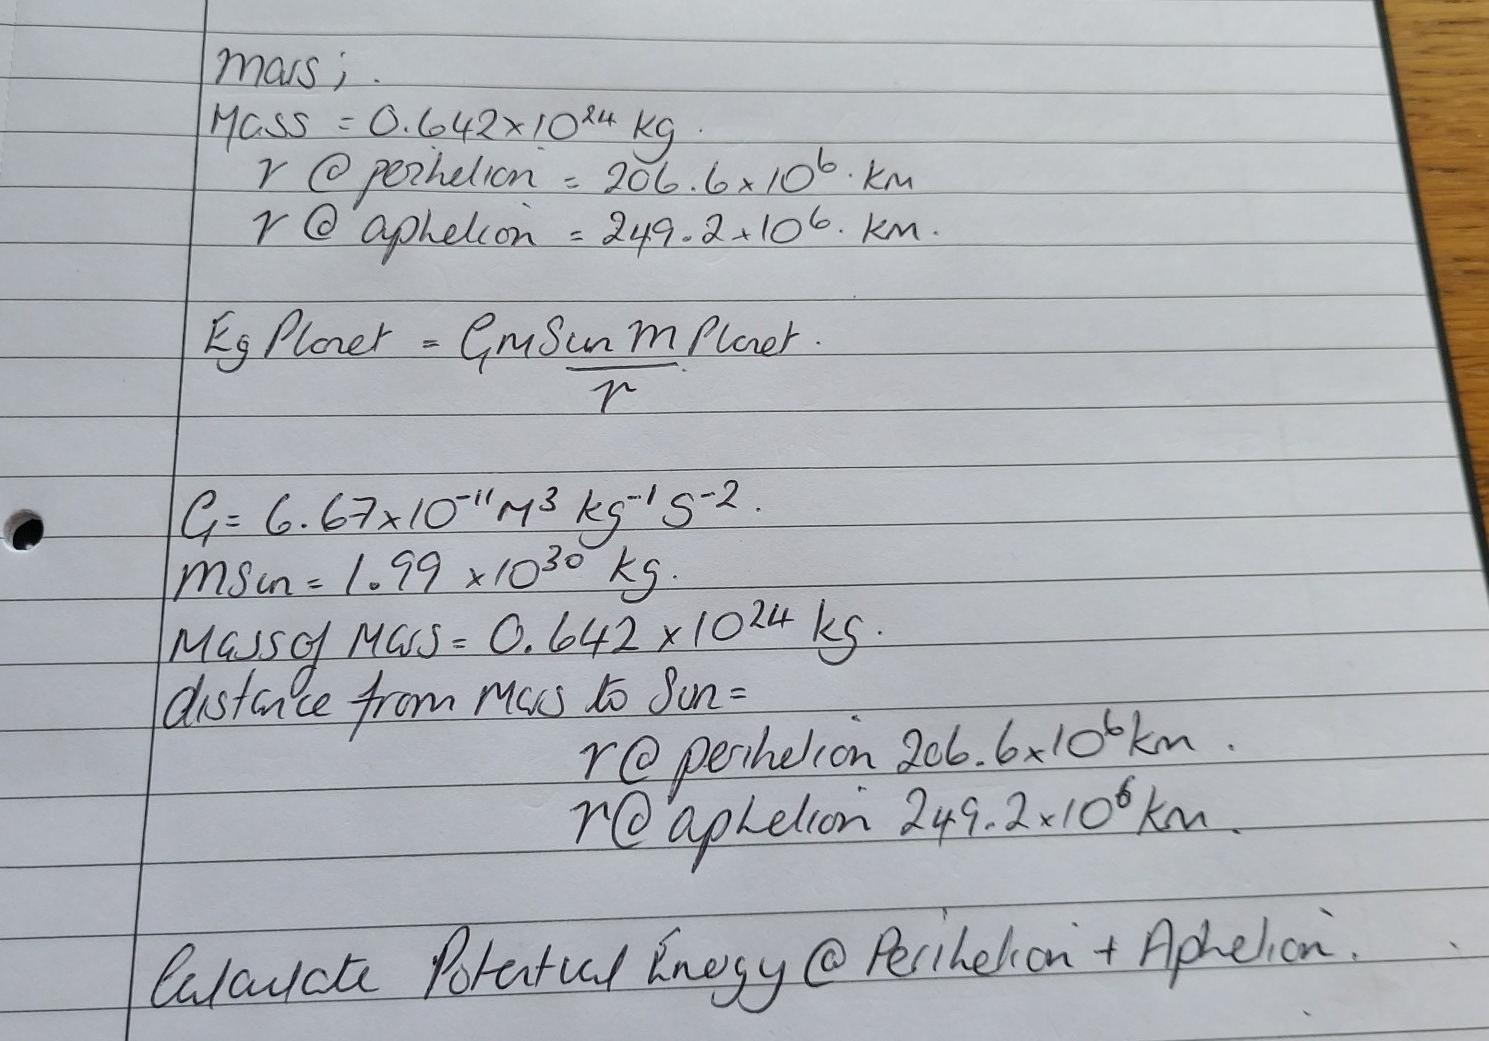 Mars;.
Mass = 0.642×10²⁴ kg.
r @ perihelion = 206.6×10⁶. km
r @ aphelion = 249.2×10⁶. km.
Eg Planet = GmSun m Planet.
r
G= 6.67×10⁻¹¹ M³ kg⁻¹ S⁻².
mSun = 1.99 ×10³⁰ kg.
Mass of Mars = 0.642 ×10²⁴ kg.
distance from Mars to Sun =
r @ perihelion 206.6×10⁶ km.
r @ aphelion 249.2×10⁶ km.
Calculate Potential Energy @ Perihelion + Aphelion.